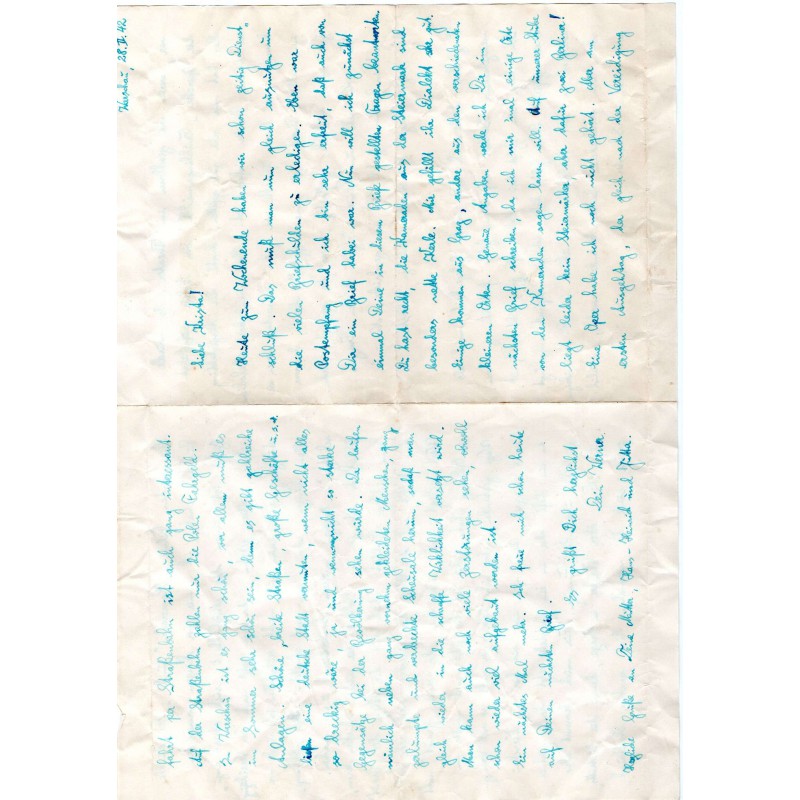 Warschau, 28. II. 42
Liebe Christa!
Heute zum Wochenende haben wir schon zeitig Dienst-
schluß. Das muß man nun gleich ausnutzen um
die vielen Briefschulden zu erledigen. Eben war
Postempfang und ich bin sehr erfreut, daß auch von
Dir ein Brief dabei war. Nun will ich zunächst
einmal Deine in diesem Brief gestellten Fragen beantworten.
Du hast recht, die Kameraden aus der Steiermark sind
besonders nette Kerle. Mir gefällt ihr Dialekt sehr gut.
Einige kommen aus Graz, andere aus den verschiedensten
kleineren Orten. Genaue Angaben werde ich Dir im
nächsten Brief schreiben, da ich mir mal einige Orte
von den Kameraden sagen lassen will. Auf unserer Stube
liegt leider kein Steiermärker, aber dafür zwei Berliner!
Eine Oper habe ich noch nicht gehört. Aber am
ersten Ausgehtag, der gleich nach der Vereidigung
fahrt per Straßenbahn ist auch ganz interessant.
Auf der Straßenbahn zahlen nur die Polen Fahrgeld.
In Warschau ist es ganz schön, vor allem muß es
im Sommer sehr schön sein, denn es gibt zahlreiche
Anlagen. Schöne, breite Straßen, große Geschäfte u.s.f.
ließen eine deutsche Stadt vermuten, wenn nicht alles
so dreckig wäre, ja und wenn man nicht so starke
Gegensätze bei der Bevölkerung sehen würde. Da laufen
nämlich neben ganz modern gekleideten Menschen, ganz
zerlumpte und verdreckte Scheusale herum, sodaß man
gleich wieder in die schroffe Wirklichkeit versetzt wird.
Man kann auch noch viele Zerstörungen sehen, obwohl
schon wieder viel aufgebaut worden ist.
Ein nächstes Mal mehr. Ich freue mich schon heute
auf Deinen nächsten Brief.
Es grüßt Dich herzlichst
Dein
Herzliche Grüße an Deine Mutter, Hans-Heinrich und Jutta.